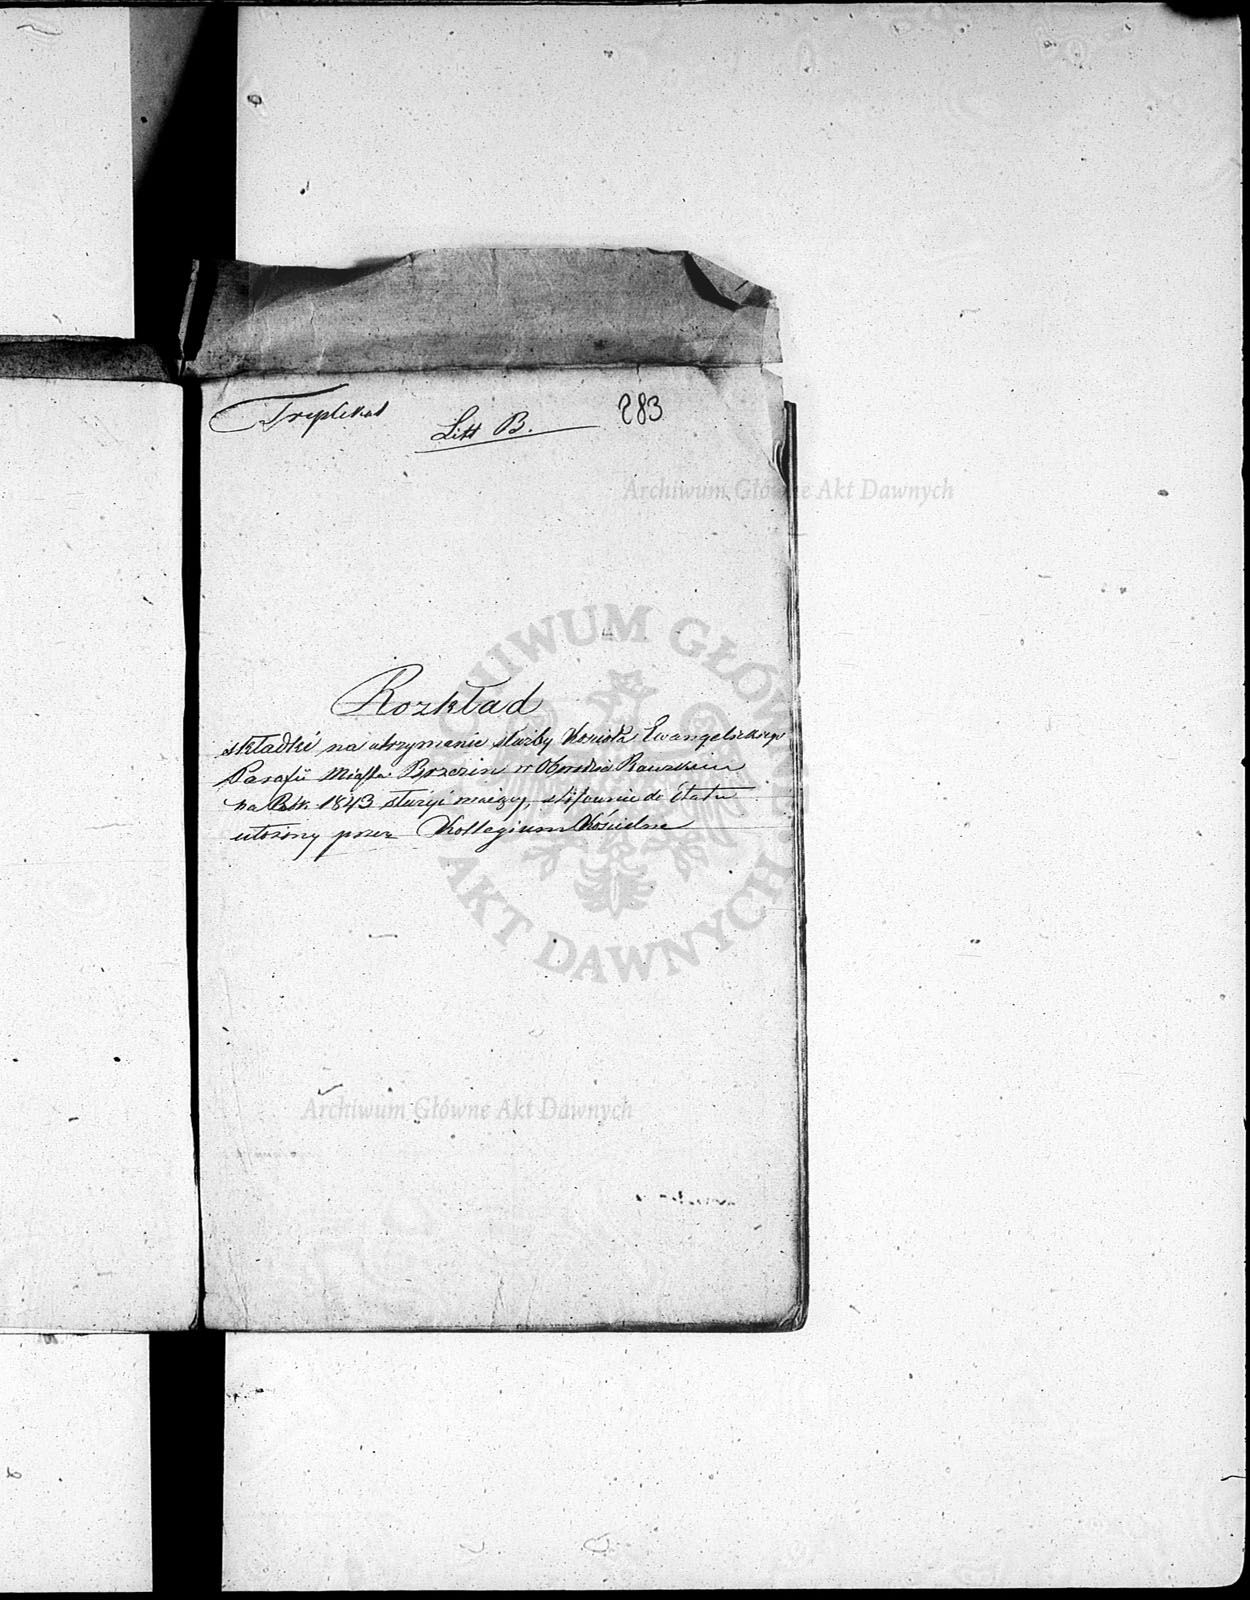 Triplikat
Litt B.
283
Archiwum Główne Akt Dawnych
Rozkład
składki na utrzymanie służby Kościoła Ewangelickiego
Parafii Miasta Brzezin w Obwodzie Rawskim
na Rok 1843 służyć mający, stósownie do Etatu
ułożony przez Kollegium Kościelne
ARCHIWUM GŁÓWNE AKT DAWNYCH
Archiwum Główne Akt Dawnych